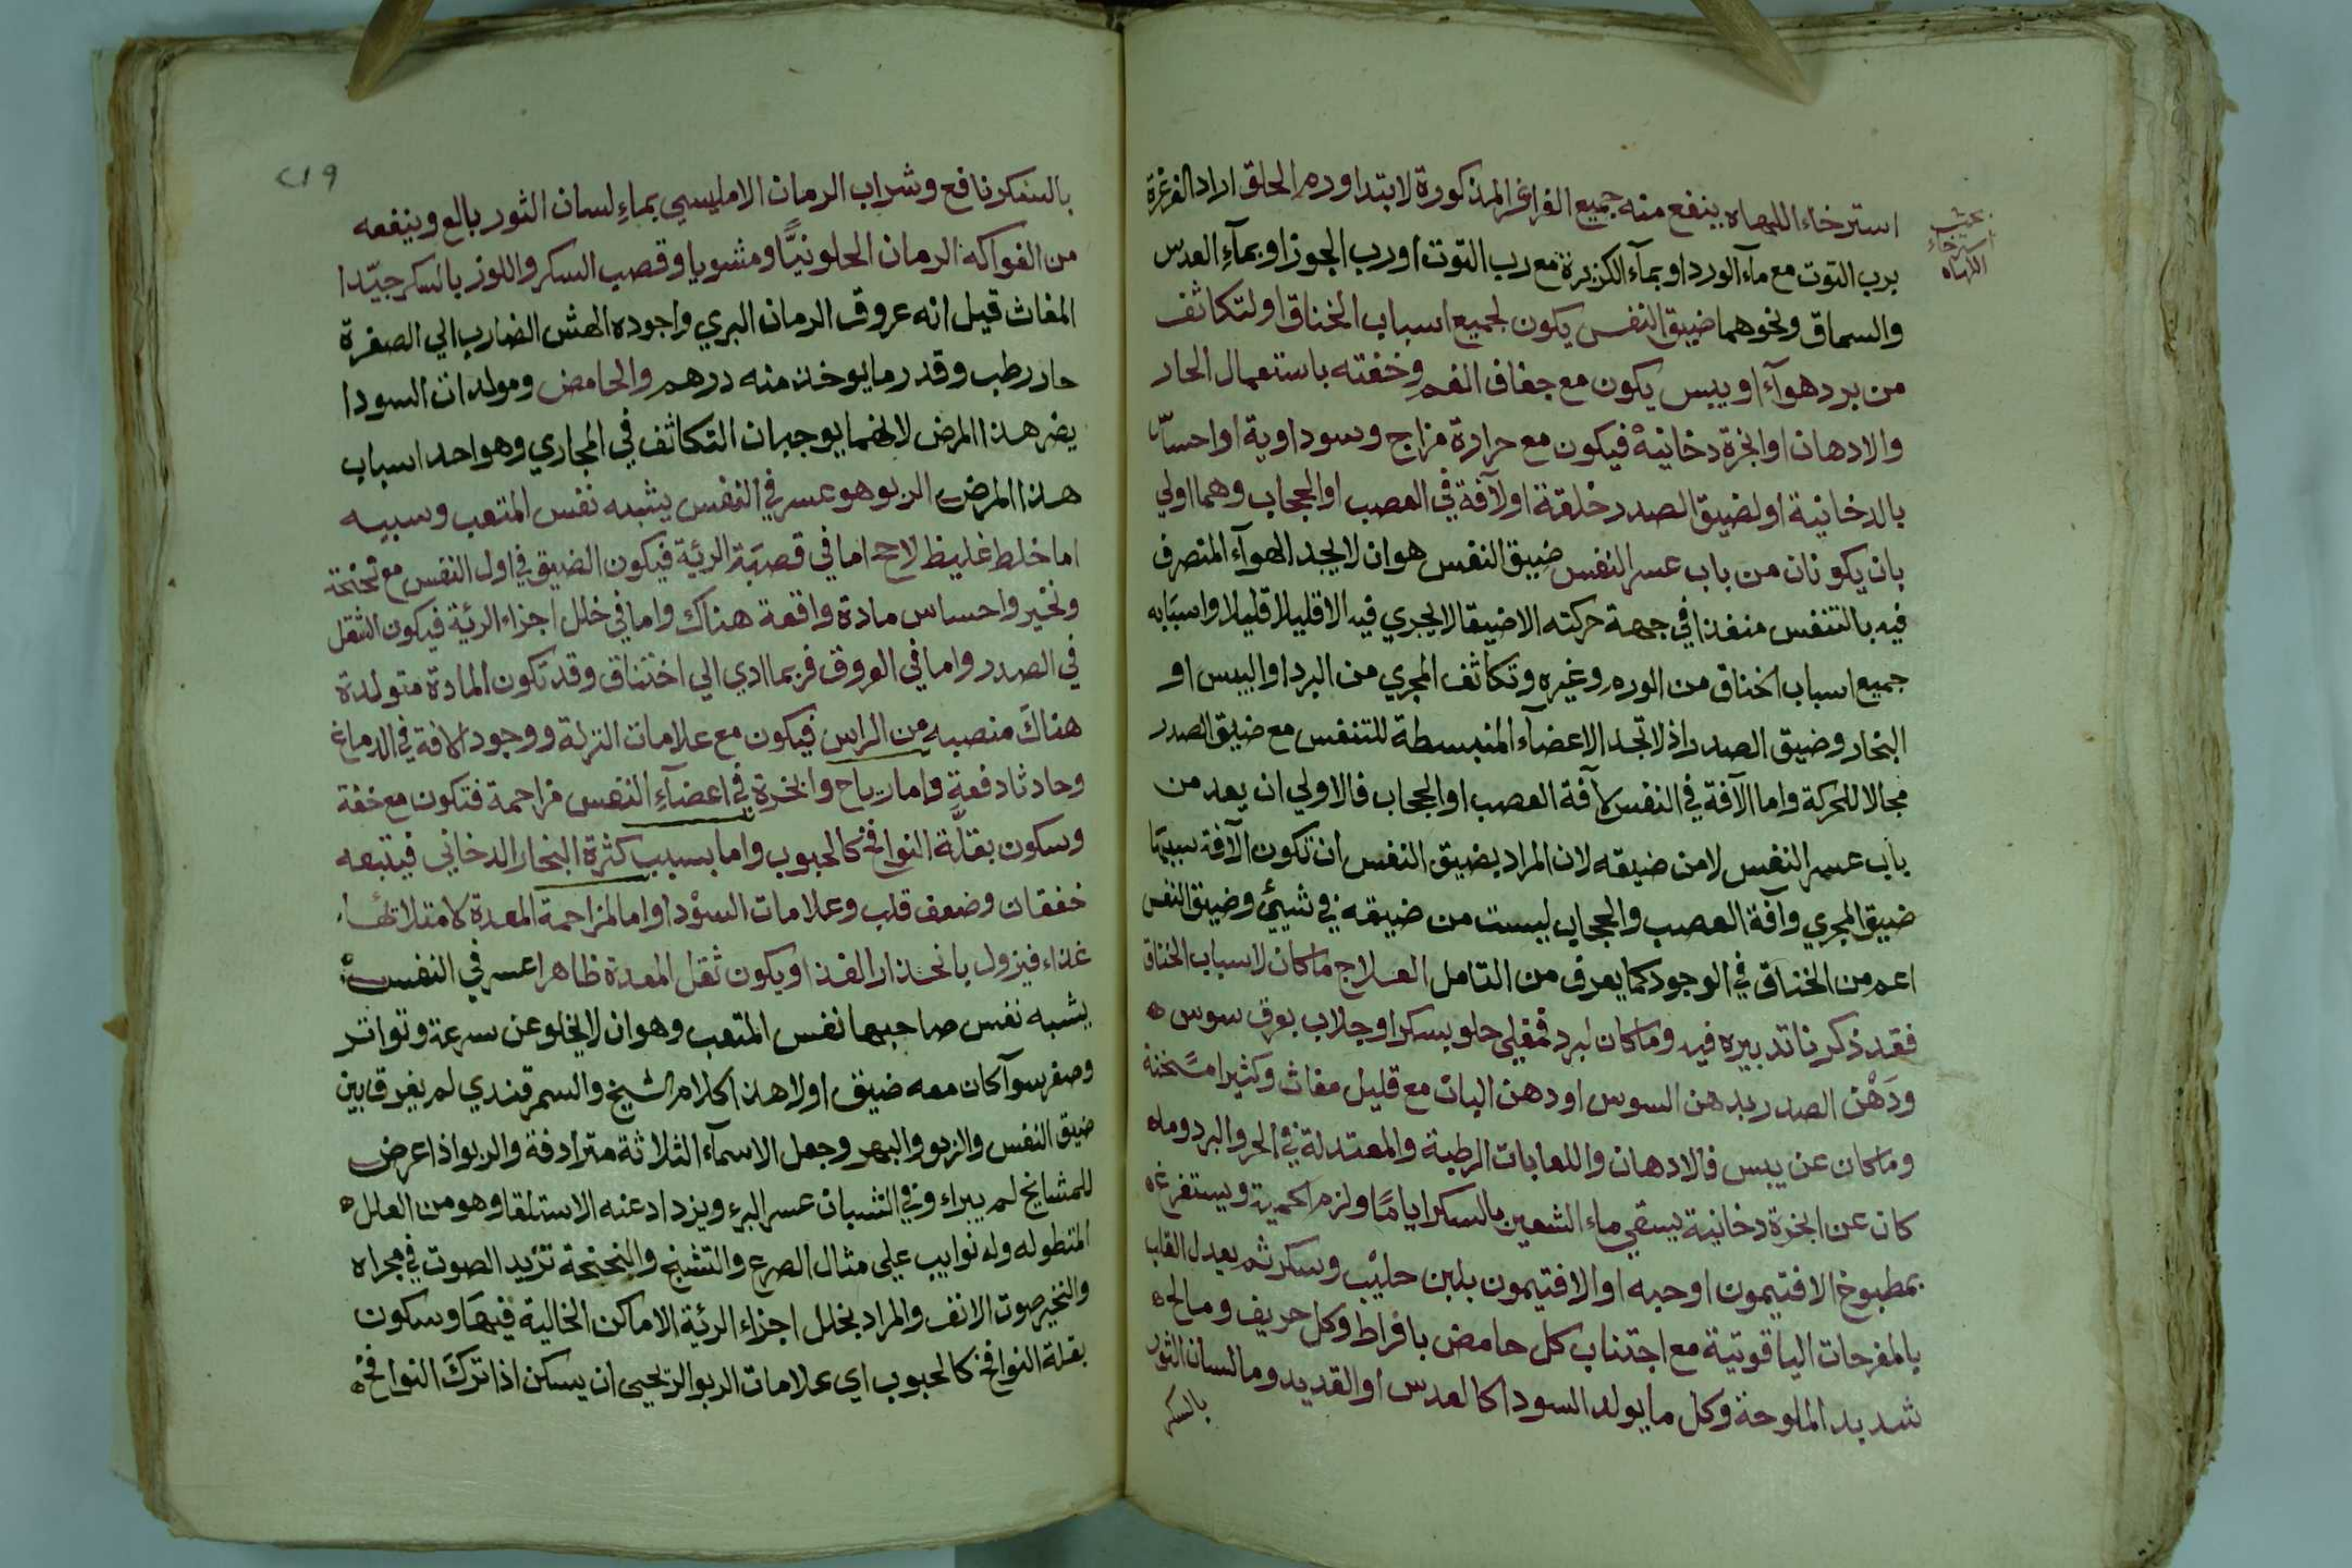 بحث
استرخاء
اللهاه
استرخاء اللهاه ينفع منه جميع الغراغر المذكورة لابتدا ورم الحلق اراد الغرغرة
برب التوت مع ماء الورد او بماء الكزبرة مع رب التوت او رب الجوز او بماء العدس
والسماق ونحوهما ضيق النفس يكون لجميع اسباب الخناق او لتكاثف
من برد هوآء او يبس يكون مع جفاف الفم وخفته باستعمال الحار
والادهان او ابخرة دخانية فيكون مع حرارة مزاج وسوداوية او احساس
بالدخانية او لضيق الصدر خلقة او لآفة في العصب او الحجاب وهما اولي
بان يكونان من باب عسر النفس ضيق النفس هو ان لا يجد الهوآء المتصرف
فيه بالتنفس منفذا في جهة حركته الا ضيقا لا يجري فيه الا قليلا قليلا واسبابه
جميع اسباب الخناق من الورم وغيره وتكاثف المجري من البرد او اليبس او
البخار وضيق الصدر اذ لا تجد الاعضآء المنبسطة للتنفس مع ضيق الصدر
مجالا للحركة واما الآفة في النفس كآفة العصب او الحجاب فالاولي ان يعد من
باب عسر النفس لا من ضيقه لان المراد بضيق النفس ان تكون الآفة سببها
ضيق المجري وآفة العصب والحجاب ليست من ضيقه في شيئ وضيق النفس
اعم من الخناق في الوجود كما يعرف من التامل العلاج ما كان لاسباب الخناق
فقد ذكرنا تدبيره فيه وما كان لبرد فمغلي حلو بسكر او جلاب بعرق سوس
ودهن الصدر بدهن السوس او دهن البان مع قليل مغاث وكثيرا مسخنة
وما كان عن يبس فالادهان واللعابات الرطبة والمعتدلة في الحر والبرد وما
كان عن ابخرة دخانية يسقي ماء الشعير بالسكر اياما ولزم الحمية ويستفرغ
بمطبوخ الافتيمون او حبه او الافتيمون بلبن حليب وسكر ثم يعدل القلب
بالمفرحات الياقوتية مع اجتناب كل حامض بافراط وكل حريف ومالح
شديد الملوحة وكل ما يولد السودا كالعدس او القديد وما لسان الثور
بالسكر
٢١٩
بالسكر نافع وشراب الرمان الامليسي بماء لسان الثور بالع وينفعه
من الفواكه الرمان الحلو نيًّا ومشويا وقصب السكر واللوز بالسكر جيّدا
المغاث قيل انه عروق الرمان البري واجوده الهش الضارب الي الصفرة
حار رطب وقدر ما يوخذ منه درهم والحامض ومولدات السودا
يضر هذا المرض لانهما يوجبان التكاثف في المجاري وهو احد اسباب
هذا المرض الربو هو عسر في النفس يشبه نفس المتعب وسببه
اما خلط غليظ لاحج اما في قصبة الرئة فيكون الضيق في اول النفس مع نحنحة
ونخير واحساس مادة واقعة هناك واما في خلل اجزاء الرئة فيكون الثقل
في الصدر واما في العروق فربما ادي الي اختناق وقد تكون المادة متولدة
هناك منصبه من الراس فيكون مع علامات النزلة ووجود الافة في الدماغ
وحادثا دفعة واما رياح وابخرة في اعضآء النفس مزاحمة فتكون مع خفة
وسكون بقلّة النوافخ كالحبوب واما بسبب كثرة البخار الدخاني فيتبعه
خفقان وضعف قلب وعلامات السودا واما لمزاحمة المعدة لامتلائها
غذاء فيزول بانحذار الغذا ويكون ثقل المعدة ظاهرا عسر في النفس
يشبه نفس صاحبها نفس المتعب وهو ان لا يخلو عن سرعة وتواتر
وصغر سوآ كان معه ضيق اولا هذا كلام الشيخ والسمرقندي لم يفرق بين
ضيق النفس والربو والبهر وجعل الاسمآء الثلاثة مترادفة والربو اذا عرض
للمشايخ لم يبراء وفي الشبان عسر البرء ويزداد عنه الاستلقا وهو من العلل
المتطوله وله نوايب علي مثال الصرع والتشنج والنحنحة تزيد الصوت في مجراه
والنخير صوت الانف والمراد بخلل اجزاء الرئة الاماكن الخالية فيها وسكون
بقلة النوافخ كالحبوب اي علامات الربو الريحي ان يسكن اذا ترك النوافخ